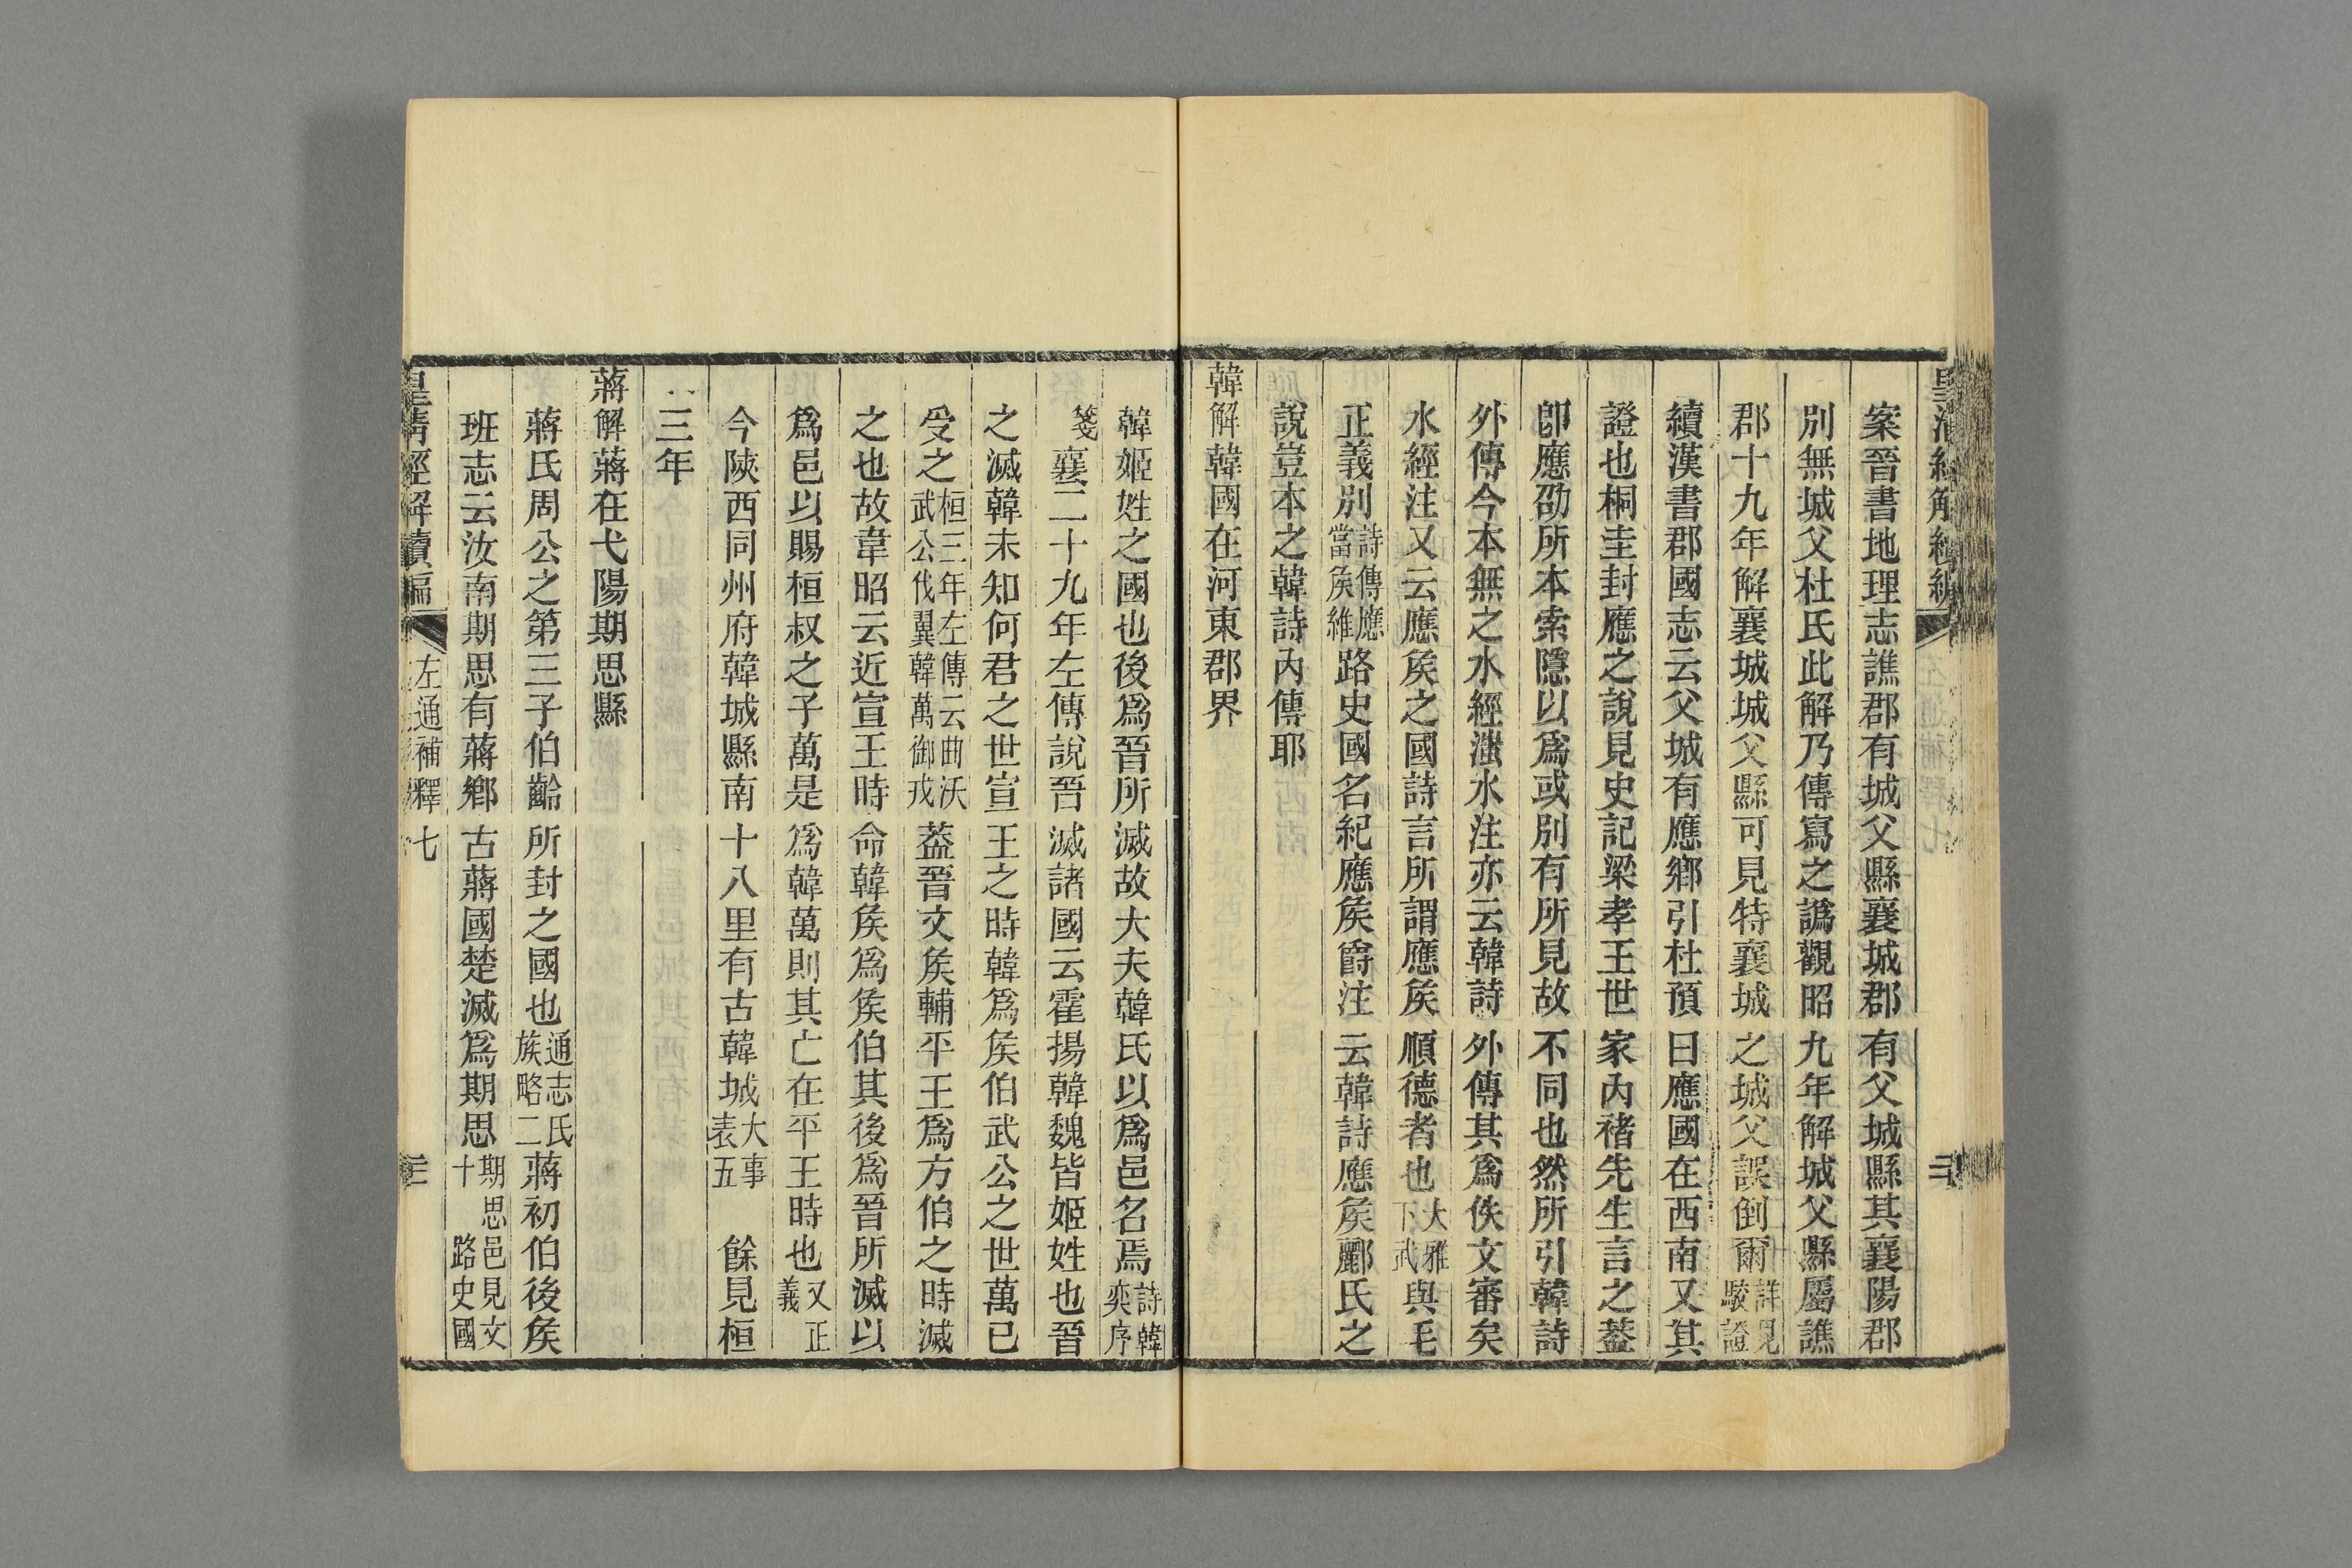 皇清經解續編
二
案晉書地理志譙郡有城父縣襄城郡有父城縣其襄陽郡
別無城父杜氏此解乃傳寫之譌觀昭九年解城父縣屬譙
郡十九年解襄城城父縣可見特襄城之城父誤倒爾詳見駿證
續漢書郡國志云父城有應鄉引杜預曰應國在西南又其
證也桐圭封應之說見史記梁孝王世家內褚先生言之葢
卽應劭所本索隱以爲或別有所見故不同也然所引韓詩
外傳今本無之水經滍水注亦云韓詩外傳其爲佚文審矣
水經注又云應矦之國詩言所謂應矦順德者也大雅下武與毛
正義別詩傳應當矦維路史國名紀應矦爵注云韓詩應矦酈氏之
說豈本之韓詩內傳耶
韓解韓國在河東郡界
韓姬姓之國也後爲晉所滅故大夫韓氏以爲邑名焉詩韓奕序
箋襄二十九年左傳說晉滅諸國云霍揚韓魏皆姬姓也晉
之滅韓未知何君之世宣王之時韓爲矦伯武公之世萬已
受之桓三年左傳云曲沃武公伐翼韓萬御戎葢晉文矦輔平王爲方伯之時滅
之也故韋昭云近宣王時命韓矦爲矦伯其後爲晉所滅以
爲邑以賜桓叔之子萬是爲韓萬則其亡在平王時也又正義
今陝西同州府韓城縣南十八里有古韓城大事表五餘見桓
三年
蔣解蔣在弋陽期思縣
蔣氏周公之第三子伯齡所封之國也通志氏族略二蔣初伯後矦
班志云汝南期思有蔣鄉古蔣國楚滅爲期思期思邑見文十路史國
皇清經解續編
左通補釋七
三